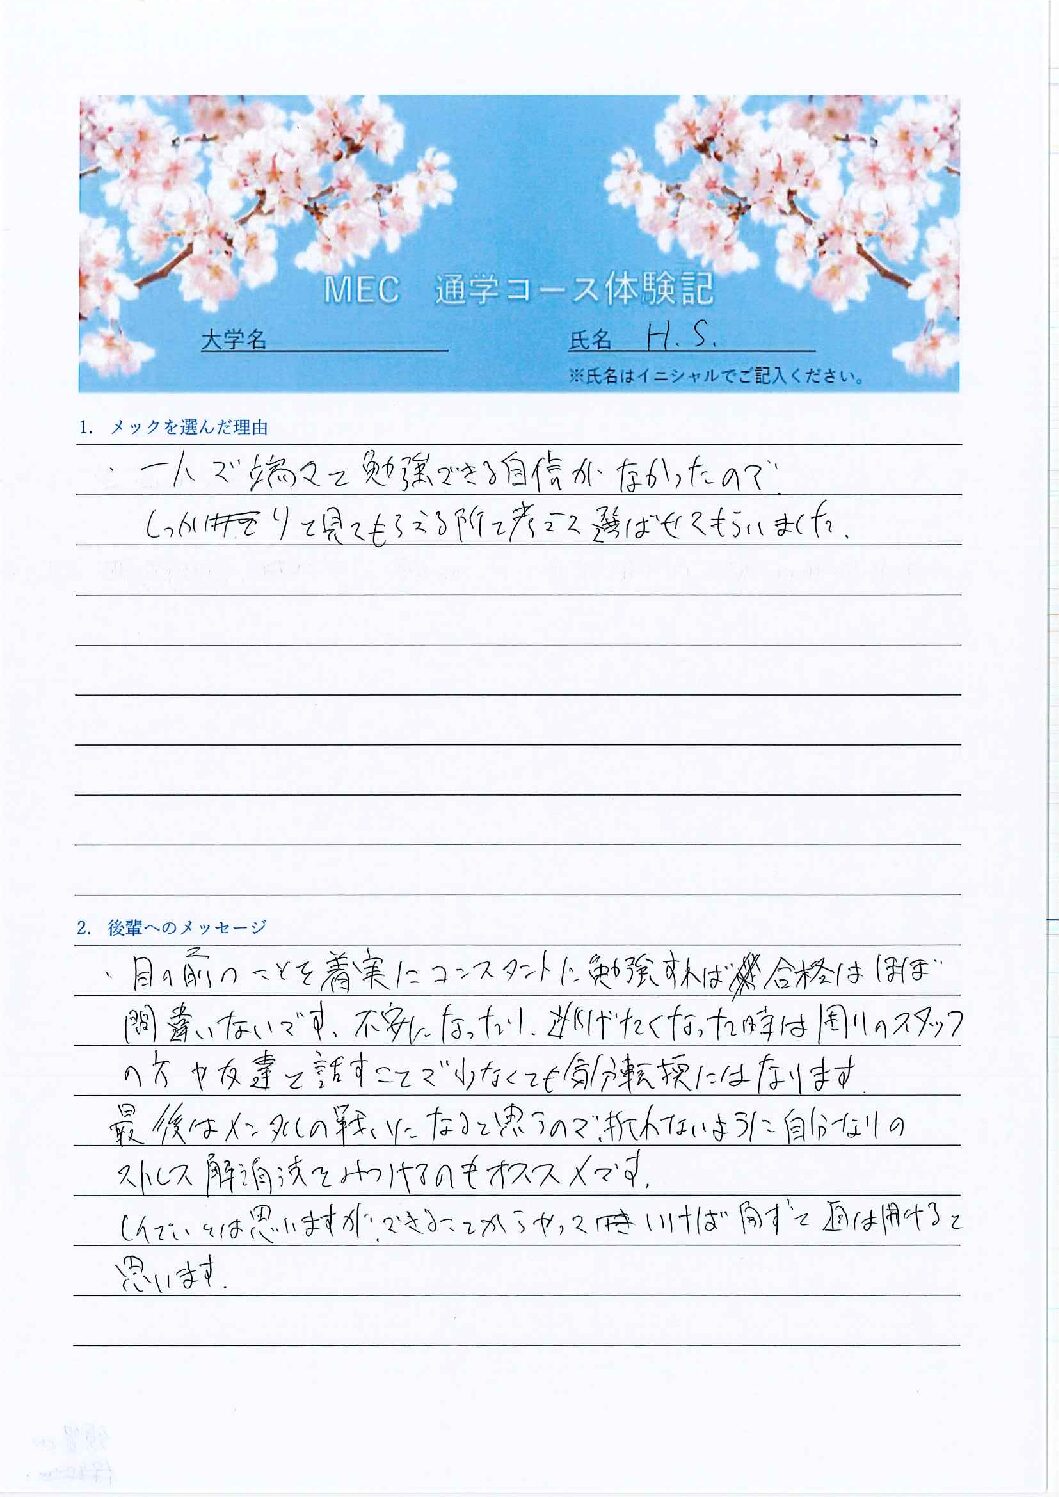 MEC 通学コース体験記
大学名
氏名 H.S.
※氏名はイニシャルでご記入ください。
1. メックを選んだ理由
・一人で端々まで勉強できる自信がなかったので、
しっかりと見てもらえる所で考えて選ばせてもらいました。
2. 後輩へのメッセージ
・目の前のことを着実にコンスタントに勉強すれば合格はほぼ
間違いないです。不安になったり、逃げたくなった時は周りのスタッフ
の方や友達と話すことで少なくても気分転換にはなります
最後はメンタルの戦いになると思うので、折れないように自分なりの
ストレス解消法をみつけるのもオススメです。
しんどいとは思いますが、できることからやっていけば必ず道は開けると
思います。